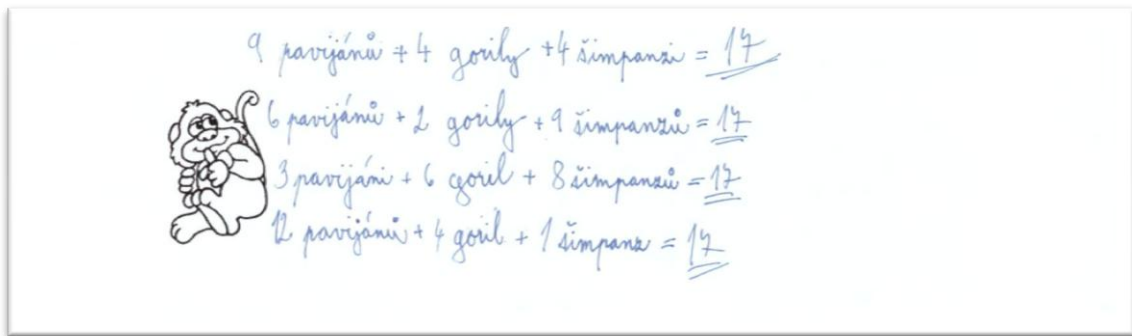 9 pavijánů + 4 gorily + 4 šimpanzi = 17
6 pavijánů + 2 gorily + 9 šimpanzů = 17
3 pavijáni + 6 goril + 8 šimpanzů = 17
12 pavijánů + 4 goril + 1 šimpanz = 17